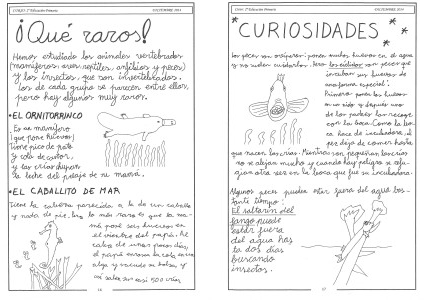 2º Educación Primaria
DICIEMBRE 2014
¡Qué raros!
Hemos estudiado los animales vertebrados
(mamíferos, aves, reptiles, anfibios y peces)
y los insectos, que son invertebrados.
Los de cada grupo se parecen entre ellos,
pero hay algunos muy raros.
• EL ORNITORRINCO
Es un mamífero
¡que pone huevos!
Tiene pico de pato
y cola de castor,
y las crías chupan
la leche del pelaje de su mamá.
• EL CABALLITO DE MAR
Tiene la cabeza parecida a la de un caballo
y nada de pie. Lo más raro es que la ma-
má pone sus huevos en
el vientre del papá. Al
cabo de unos días,
el papá
alga y sacude su bolsa, y
así salen casi 500 crías
2º Educación Primaria
DICIEMBRE 2014
CURIOSIDADES
Los peces son ovíparos: ponen muchos huevos en el agua
y no suelen cuidarlos. Pero los cíclidos son peces que
incuban sus huevos de
una forma especial:
Primero ponen los huevos
en un nido y después uno
de los padres los recoge
con la boca. Como la bo-
ca hace de incubadora, el
pez deja de comer hasta
que nacen las crías. Mientras son pequeñas, las crías
no se alejan mucho y cuando hay peligro se refu-
gian otra vez en la boca que fue su incubadora.
Algunos peces pueden estar fuera del agua bas-
tante tiempo:
El saltarín del
fango puede
estar fuera
del agua has-
ta dos días
buscando
insectos.